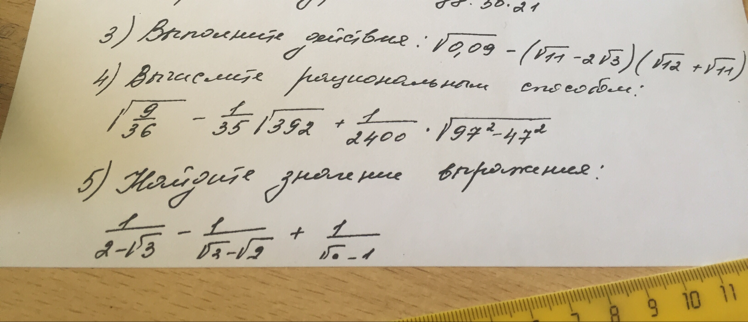 88 · 30 · 21
3) Выполните действия: √0,09 - (√11 - 2√3)(√12 + √11)
4) Вычислите рациональным способом:
√(9/36) - 1/35 √392 + 1/2400 · √(97² - 47²)
5) Найдите значение выражения:
1/(2-√3) - 1/(√3-√2) + 1/(√2-1)
7 8 9 10 11